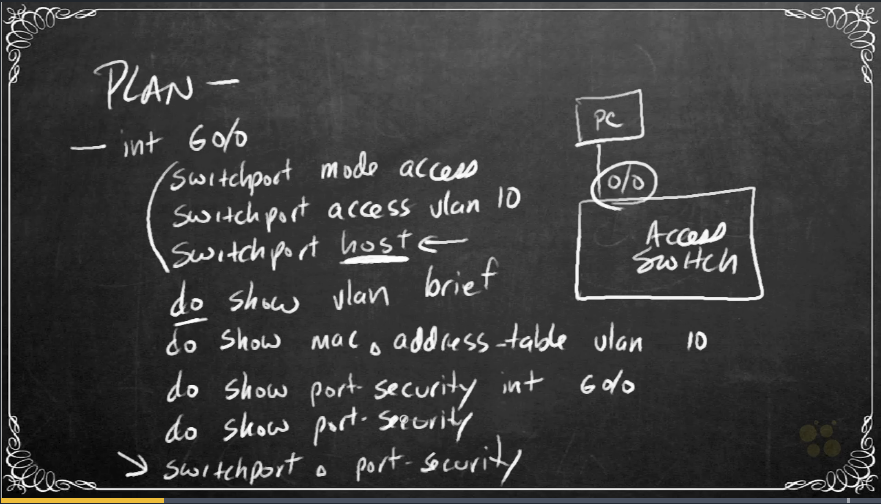 PLAN -
- int G0/0
switchport mode access
switchport access vlan 10
switchport host ←
do show vlan brief
do show mac address-table vlan 10
do show port-security int G0/0
do show port-security
→ switchport port-security
PC
0/0
Access
Switch